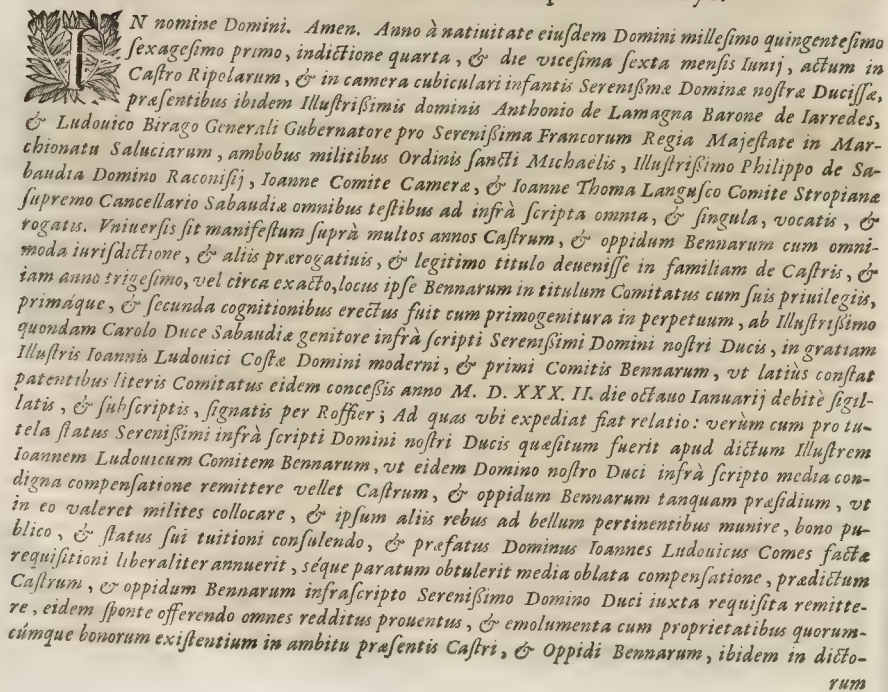 IN nomine Domini. Amen. Anno à natiuitate eiusdem Domini millesimo quingentesimo
sexagesimo primo, indictione quarta, & die vicesima sexta mensis Iunij, actum in
Castro Ripolarum, & in camera cubiculari infantis Serenißimæ Dominæ nostræ Ducissæ,
præsentibus ibidem Illustrißimis dominis Anthonio de Lamagna Barone de Iarredes,
& Ludouico Birago Generali Gubernatore pro Serenißima Francorum Regia Majestate in Mar-
chionatu Saluciarum, ambobus militibus Ordinis sancti Michaëlis, Illustrißimo Philippo de Sa-
baudia Domino Raconisij, Ioanne Comite Cameræ, & Ioanne Thoma Langusco Comite Stropianæ
supremo Cancellario Sabaudiæ omnibus testibus ad infrà scripta omnia, & singula, vocatis, &
rogatis. Vniuersis sit manifestum suprà multos annos Castrum, & oppidum Bennarum cum omni-
moda iurisdictione, & aliis prærogatiuis, & legitimo titulo deuenisse in familiam de Castris, &
iam anno trigesimo, vel circa exacto, locus ipse Bennarum in titulum Comitatus cum suis priuilegiis,
primáque, & secunda cognitionibus erectus fuit cum primogenitura in perpetuum, ab Illustrißimo
quondam Carolo Duce Sabaudiæ genitore infrà scripti Serenißimi Domini nostri Ducis, in gratiam
Illustris Ioannis Ludouici Costæ Domini moderni, & primi Comitis Bennarum, vt latiùs constat
patentibus literis Comitatus eidem conceßis anno M. D. XXX. II. die octauo Ianuarij debitè sigil-
latis, & subscriptis, signatis per Roffier; Ad quas vbi expediat fiat relatio: verùm cum pro tu-
tela status Serenißimi infrà scripti Domini nostri Ducis quæsitum fuerit apud dictum Illustrem
Ioannem Ludouicum Comitem Bennarum, vt eidem Domino nostro Duci infrà scripto media con-
digna compensatione remittere vellet Castrum, & oppidum Bennarum tanquam præsidium, vt
in eo valeret milites collocare, & ipsum aliis rebus ad bellum pertinentibus munire, bono pu-
blico, & status sui tuitioni consulendo, & præfatus Dominus Ioannes Ludouicus Comes factæ
requisitioni liberaliter annuerit, séque paratum obtulerit media oblata compensatione, prædictum
Castrum, & oppidum Bennarum infrascripto Serenißimo Domino Duci iuxta requisita remitte-
re, eidem sponte offerendo omnes redditus prouentus, & emolumenta cum proprietatibus quorum-
cúmque bonorum existentium in ambitu præsentis Castri, & Oppidi Bennarum, ibidem in dicto-
rum